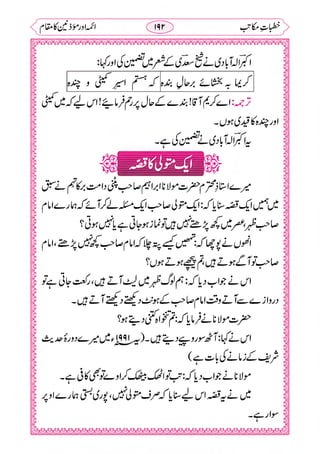 خطباتِ مکاتب ۱۹۲ ائمہ اور مؤذنین کا مقام
اکبر الہ آبادی نے شیخ سعدی کے شعر میں تضمین کی اور کہا:
کریما بہ بخشائے برحالِ بندہ کہ ہستم اسیرِ کمیٹی و چندہ
ترجمہ: اے کریم آقا! بندے کے حال پر رحم فرمائیے! اس لیے کہ میں کمیٹی
اور چندہ کا قیدی ہوں۔
یہ اکبر الہ آبادی نے تضمین کی ہے۔
ایک متولی کا قصّہ
میرے استاذِ محترم حضرت مولانا ابراہیم صاحب پٹنی دامت برکاتہم نے سبق
میں ہمیں ایک قصہ سنایا کہ: ایک متولی صاحب ایک مسئلہ لے کر آئے کہ ہمارے امام
صاحب ظہر، عصر میں کچھ پڑھتے نہیں ہیں تو نماز ہو جاتی ہے یا نہیں ہوتی؟
انھوں نے پوچھا کہ: تمھیں کیسے پتہ چلا کہ امام صاحب کچھ نہیں پڑھتے، امام
صاحب تو آگے ہوتے ہیں، تم پیچھے ہوتے ہوں؟
اس نے جواب دیا کہ: ہم لوگ ظہر میں لیٹ آتے ہیں، رکعت جاتی ہے تو
دروازے سے آتے وقت امام صاحب کے ہونٹ کے دیکھتے دیکھتے آتے ہیں۔
حضرت مولانا نے فرمایا کہ: تم تنخواہ کتنی دیتے ہو؟
اس نے کہا: آٹھ سو روپیے دیتے ہیں۔ (یہ ۱۹۹۱ء میں میرے دورۂ حدیث
شریف کے زمانے کی بات ہے)
مولانا نے جواب دیا کہ: تب تو اٹھک بیٹھک کراوے تو بھی کافی ہے۔
میں نے یہ قصہ اس لیے سنایا کہ صرف متولی نہیں، پوری بستی ہمارے اوپر
سوار ہے۔